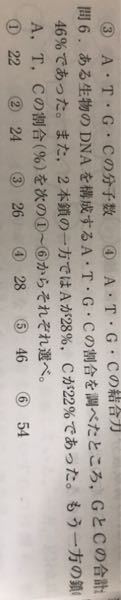 ③ A・T・G・Cの分子数 ④ A・T・G・Cの結合力
問6．ある生物のDNAを構成するA・T・G・Cの割合を調べたところ，GとCの合計
46％であった。また，2本鎖の一方ではAが28％，Cが22％であった。もう一方の鎖
A，T，Cの割合(％)を次の①〜⑥からそれぞれ選べ。
① 22 ② 24 ③ 26 ④ 28 ⑤ 46 ⑥ 54